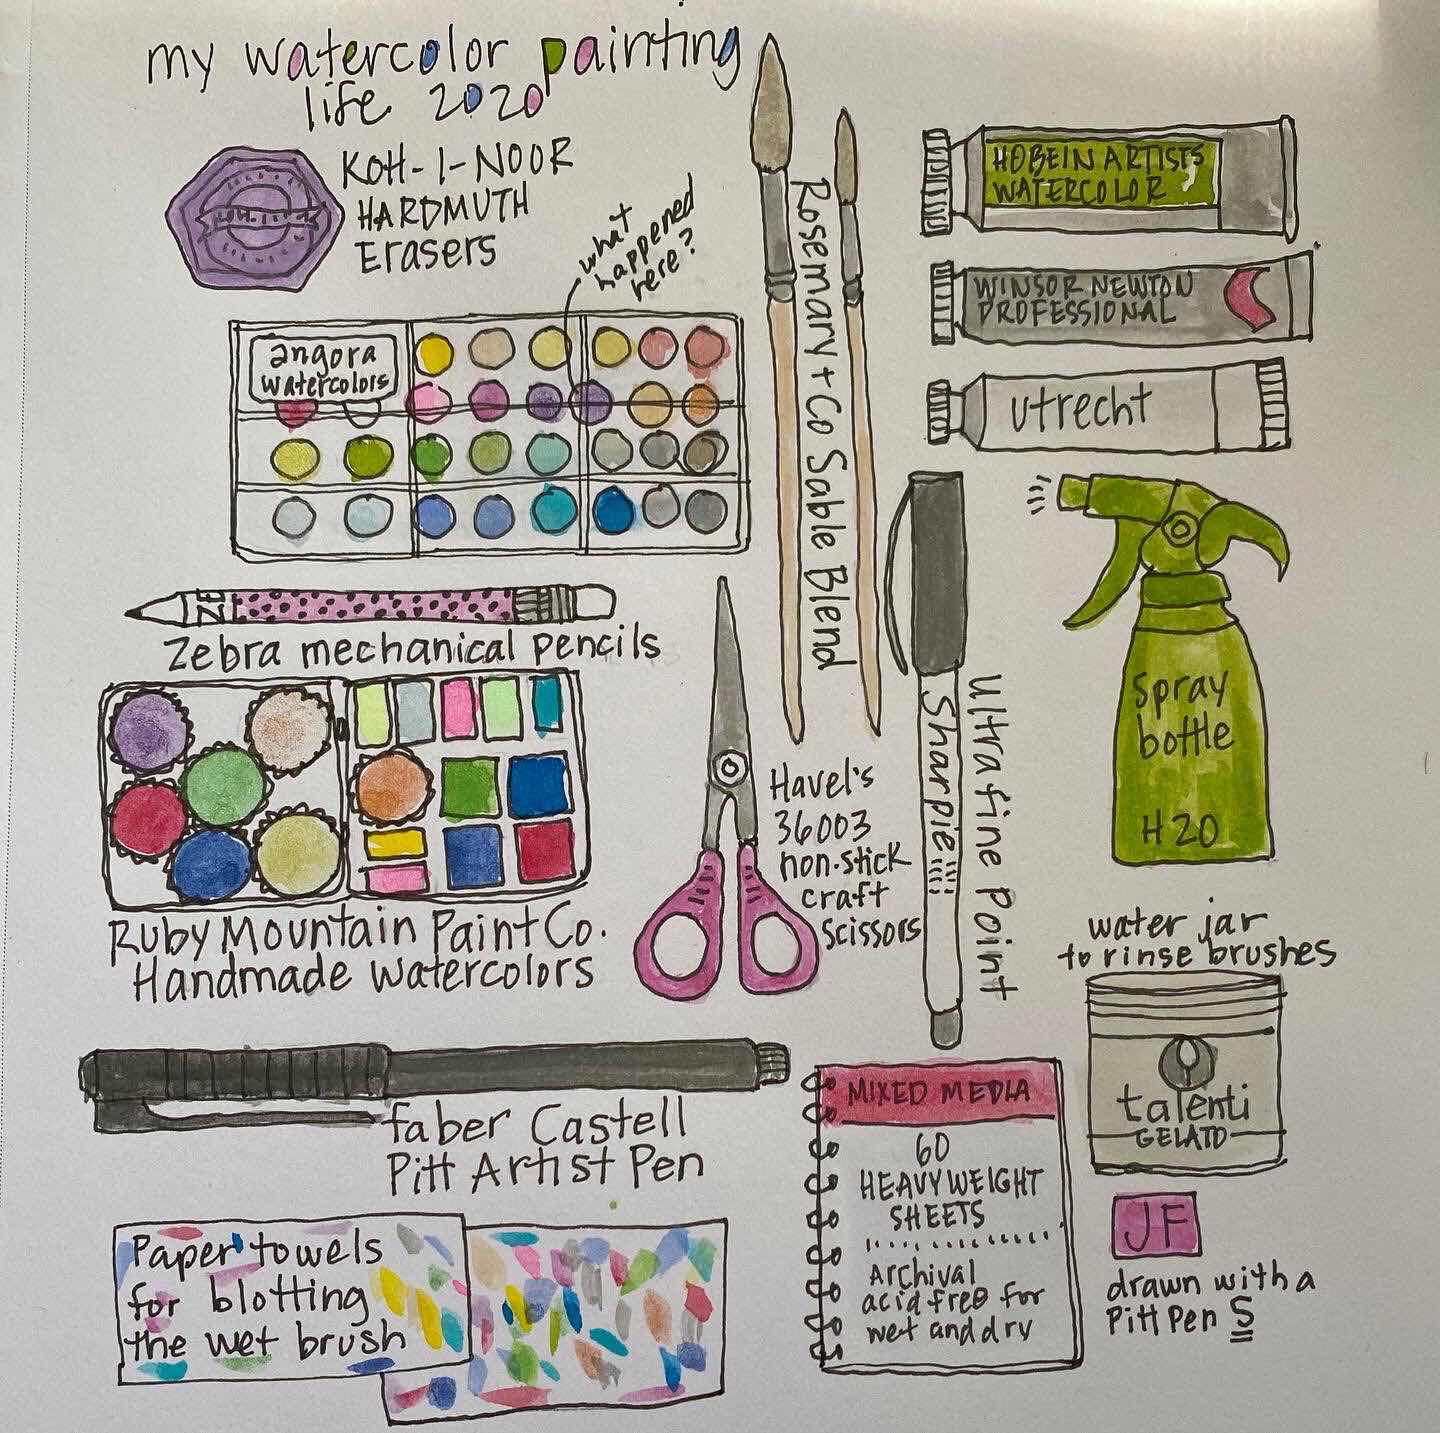 my watercolor painting
life 2020
KOH-I-NOOR
HARDMUTH
Erasers
what
happened
here?
angora
watercolors
Rosemary + Co Sable Blend
HOBEIN ARTISTS
WATERCOLOR
WINSOR NEWTON
PROFESSIONAL
utrecht
ZE
Zebra mechanical pencils
Spray
bottle
H20
Sharpie
Ultra fine Point
Havel's
36003
non-stick
craft
scissors
Ruby Mountain Paint Co.
Handmade watercolors
water jar
to rinse brushes
talenti
GELATO
faber Castell
Pitt Artist Pen
MIXED MEDIA
60
HEAVYWEIGHT
SHEETS
Archival
acid free for
wet and dry
Paper towels
for blotting
the wet brush
JF
drawn with a
Pitt Pen S